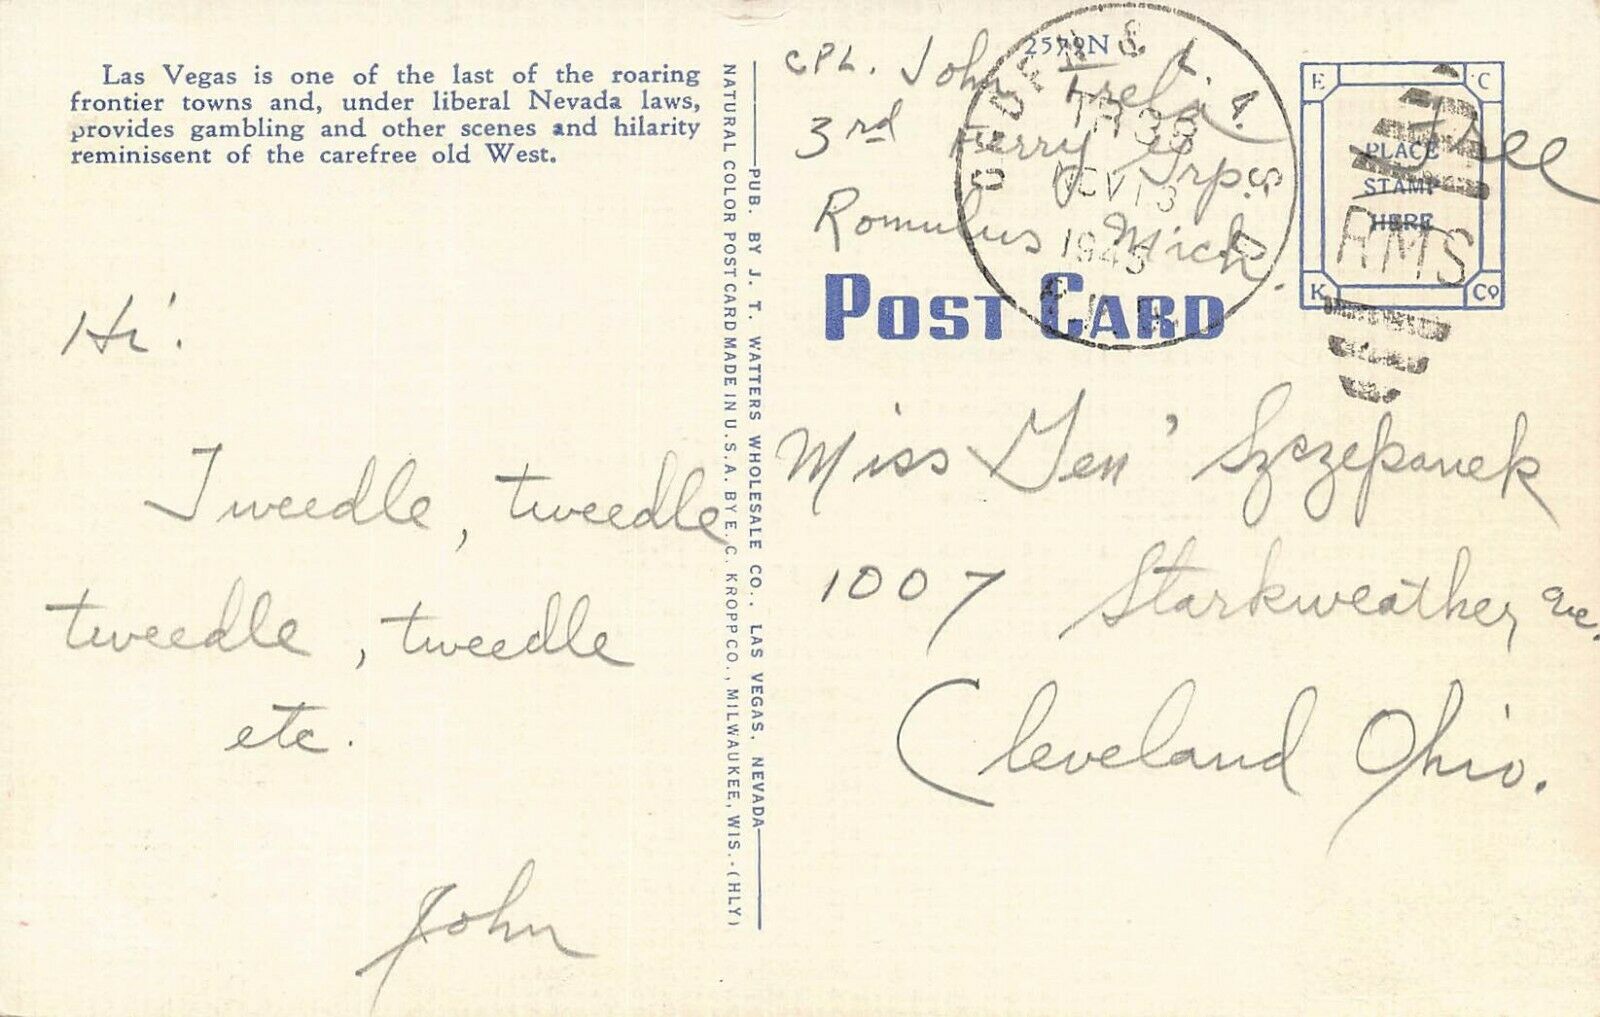 Las Vegas is one of the last of the roaring
frontier towns and, under liberal Nevada laws,
provides gambling and other scenes and hilarity
reminiscent of the carefree old West.
Hi!
Tweedle, tweedle
tweedle, tweedle
etc.
John
NATURAL COLOR POST CARD MADE IN U.S.A. BY E. C. KROPP CO., MILWAUKEE, WIS.-(HLY)
PUB. BY J. T. WATTERS WHOLESALE CO., LAS VEGAS, NEVADA
2579N
CPL. John Trela
3rd Ferry Grp.
Romulus Mich.
POST CARD
OGDEN & L. A.
TR 35
NOV 13
1945
E C
PLACE
STAMP
HERE
K Co
Free
RMS
Miss Gen' Szczepanek
1007 Starkweather Ave.
Cleveland Ohio.